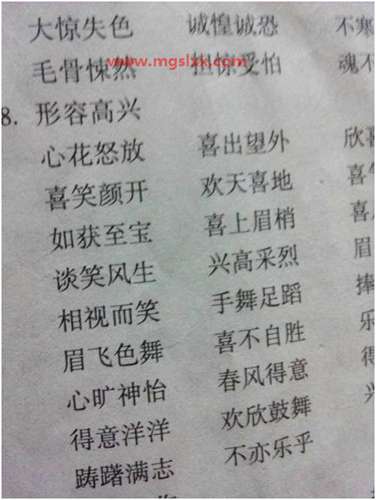 大惊失色 诚惶诚恐 不寒
毛骨悚然 担惊受怕 魂不
www.mgslzx.com
8. 形容高兴
心花怒放 喜出望外 欣
喜笑颜开 欢天喜地 喜
如获至宝 喜上眉梢 喜
谈笑风生 兴高采烈 眉
相视而笑 手舞足蹈 捧
眉飞色舞 喜不自胜 乐
心旷神怡 春风得意 得
得意洋洋 欢欣鼓舞 兴
踌躇满志 不亦乐乎